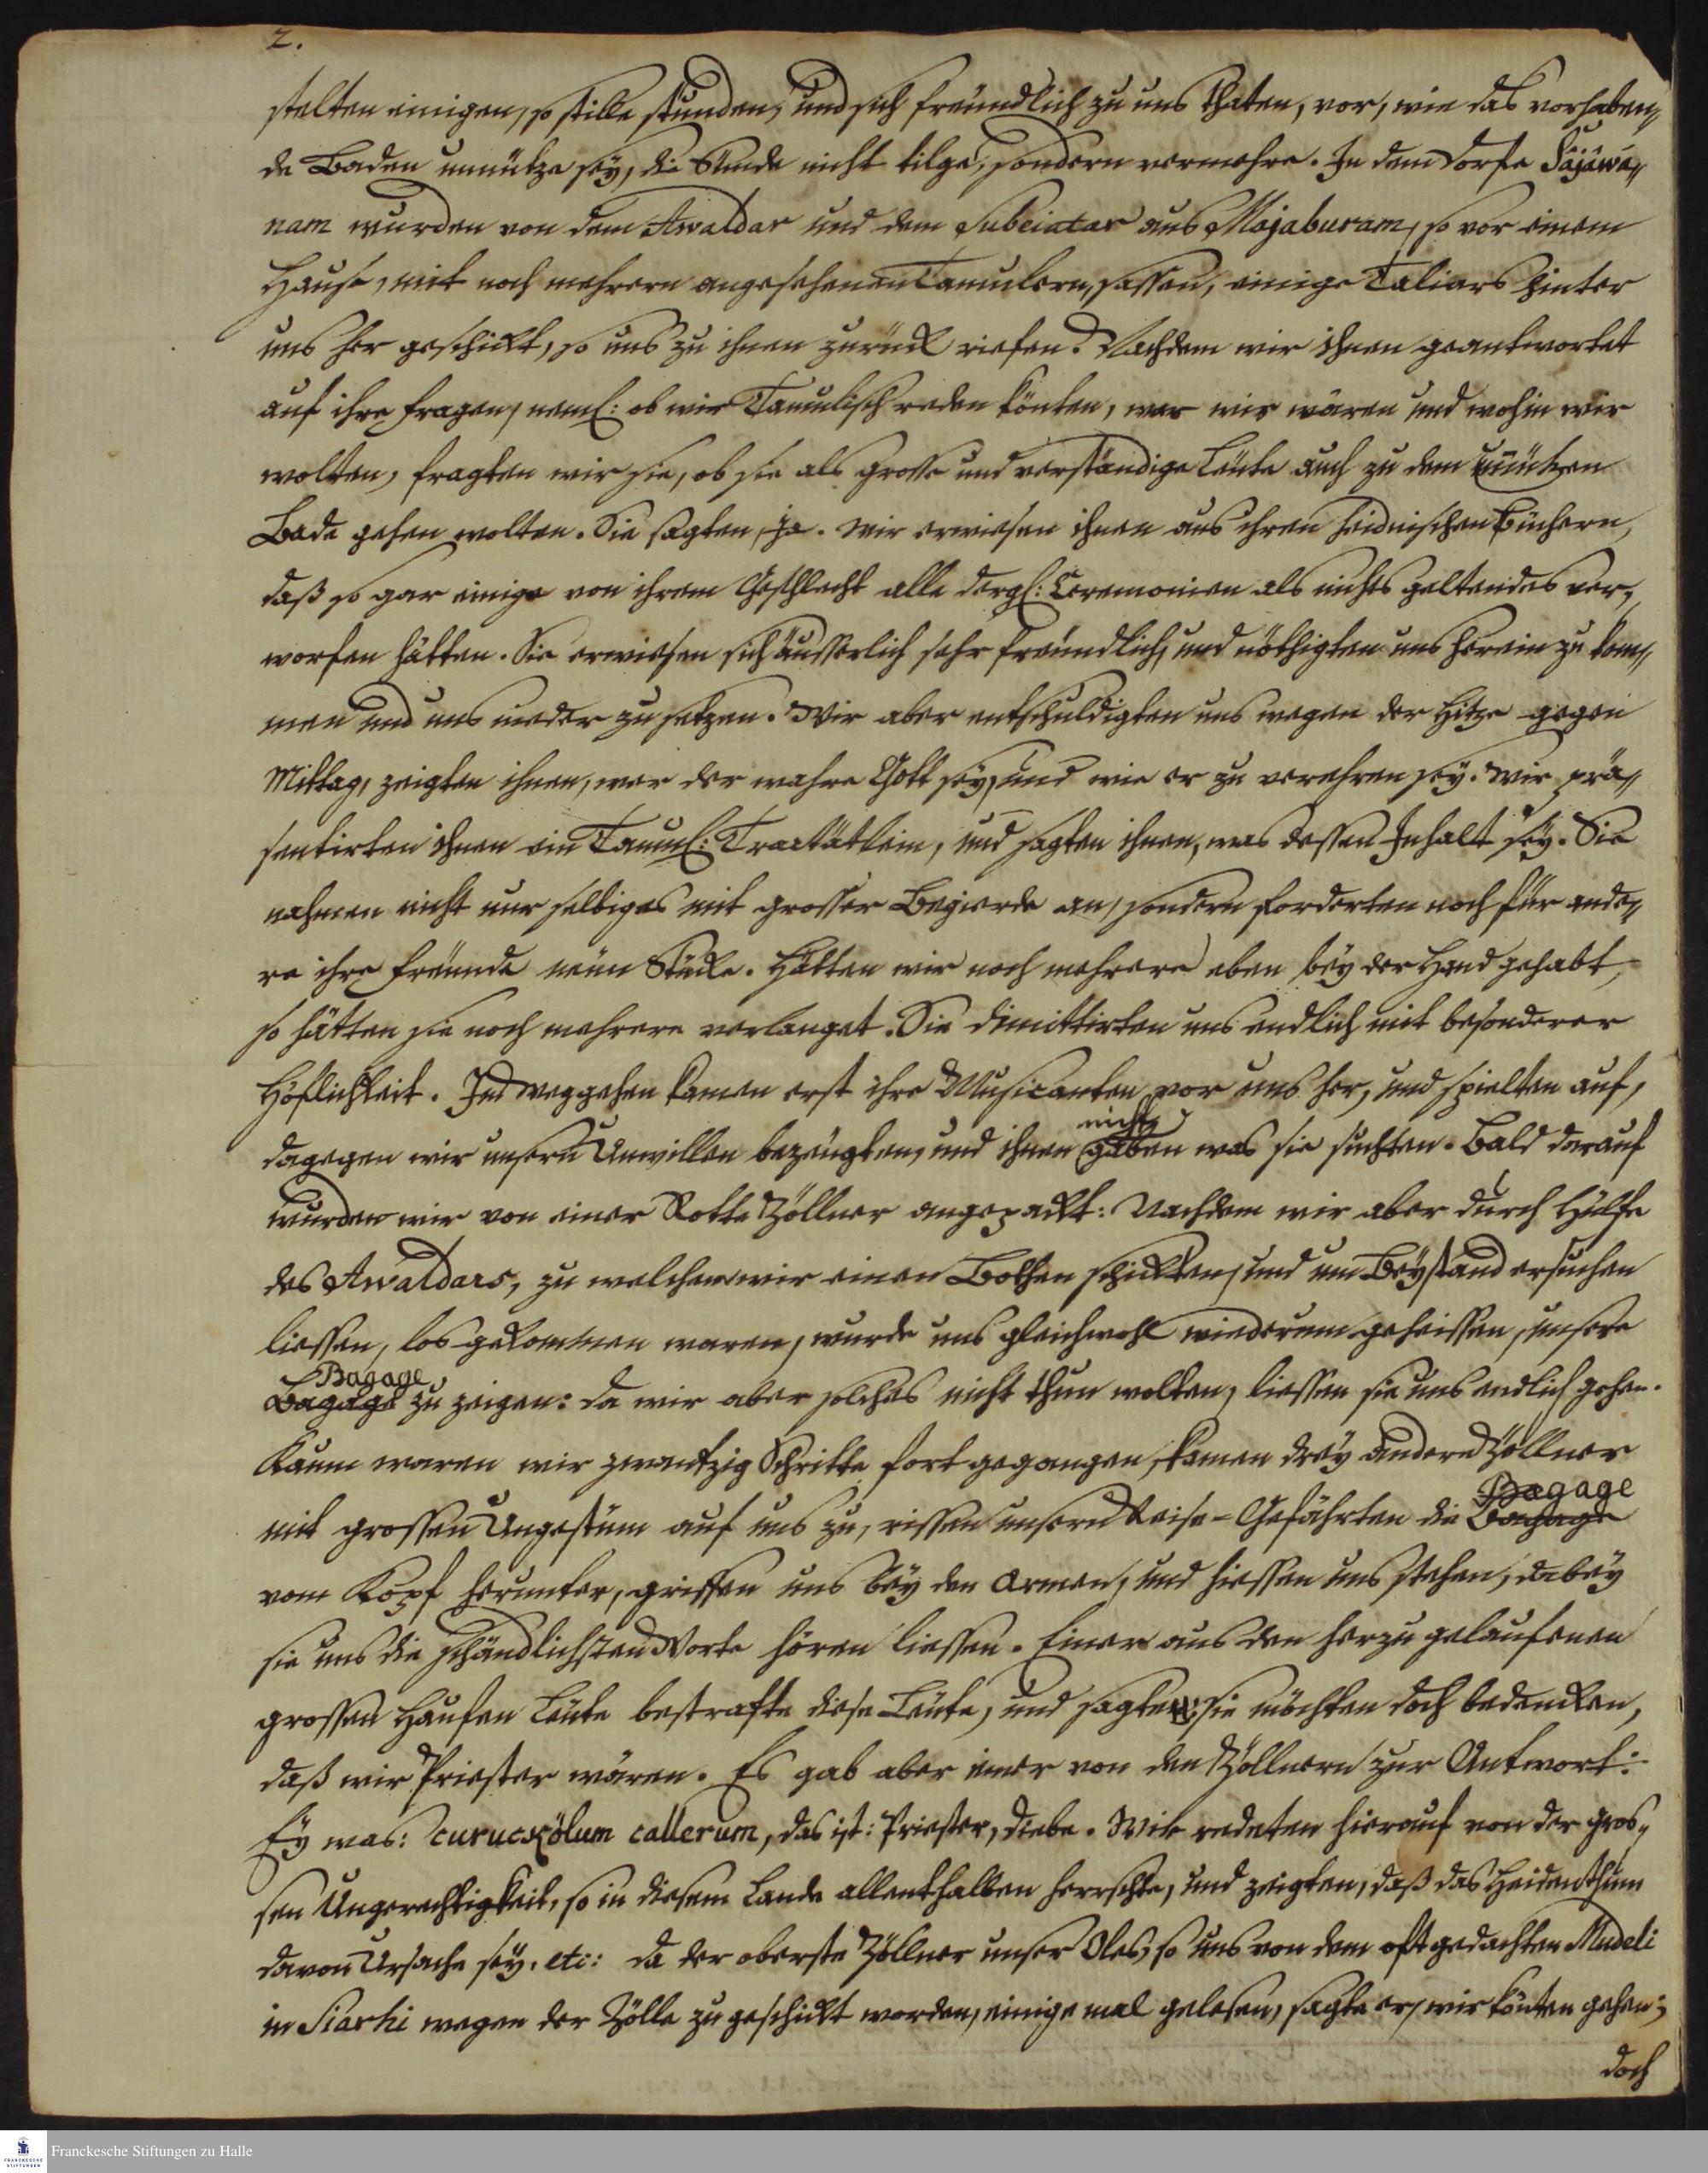 2.
stelten einigen, so stille stunden, und sich freundlich zu uns thaten, vor, wie das vorhaben„
de Baden unnütze sey, die Sünde nicht tilge, sondern vermehre. In dem Dorfe Säjáwá„
nam wurden von dem Awaldar und dem Subeiatar aus Majaburam, so vor einem
Hause, mit noch mehrern angesehenen Tamulern, sassen, einige Taliars hinter
uns her geschickt, so uns zu ihnen zurück riefen. Nachdem wir ihnen geantwortet
auf ihre Fragen, neml: ob wir Tamulisch reden könten, wer wir wären und wohin wir
wolten, fragten wir sie, ob sie als grosse und verständige Leute auch zu dem unnützen
Bade gehen wolten. Sie sagten, ja. Wir erwiesen ihnen aus ihren heidnischen Büchern,
daß so gar einige von ihrem Geschlecht alle dergl: Ceremonien als nichts geltendes ver„
worfen hätten. Sie erwiesen sich äusserlich sehr freundlich, und nöthigten uns herein zu kom„
men und uns nieder zu setzen. Wir aber entschuldigten uns wegen der Hitze gegen
Mittag, zeigten ihnen, wer der wahre Gott sey, und wie er zu verehren sey. Wir prä„
sentirten ihnen ein Tamul: Tractätlein, und sagten ihnen, was dessen Inhalt sey. Sie
nahmen nicht nur selbiges mit grosser Begierde an, sondern forderten noch für ande„
re ihre Freunde neun Stücke. Hätten wir noch mehrere eben bey der Hand gehabt,
so hätten sie noch mehrere verlanget. Sie dimittirten uns endlich mit besonderer
Höflichkeit. Im weggehen kamen erst ihre Musicanten vor uns her, und spielten auf,
dagegen wir unsern Unwillen bezeugten, und ihnen nicht gaben was sie suchten. Bald darauf
wurden wir von einer Rotte Zöllner angepackt: Nachdem wir aber durch Hülfe
des Awaldars, zu welchem wir einen Bothen schickten, und um Beystand ersuchen
liessen, los gekommen waren, wurde uns gleichwohl wiederum geheissen, unsere
Bagage Bagage zu zeigen: da wir aber solches nicht thun wolten, liessen sie uns endlich gehen.
Kaum waren wir zwantzig Schritte fort gegangen, kamen drey andere Zöllner
mit grossem Ungestüm auf uns zu, rissen unsern Reise-Gefährten die Bagage Bagage
vom Kopf herunter, griffen uns bey den Armen, und hiessen uns stehen, dabey
sie uns die schändlichsten Worte hören liessen. Einer aus den herzu gelaufenen
grossen Haufen Leute bestrafte diese Leute, und sagte, sie möchten doch bedencken,
daß wir Priester wären. Es gab aber einer von den Zöllnern zur Antwort:
Ey was: curuckölum callerum, das ist: Priester, Diebe. Wir redeten hierauf von der gros„
sen Ungerechtigkeit, so in diesem Lande allenthalben herrschte, und zeigten, daß das Heidenthum
davon Ursache sey. etc: Da der oberste Zöllner unser Oles, so uns von dem oft gedachten Mudeli
in Siarhi wegen der Zölle zu geschickt worden, einige mal gelesen, sagte er, wir könten gehen;
doch
Franckesche Stiftungen zu Halle
FRANCKESCHE
STIFTUNGEN